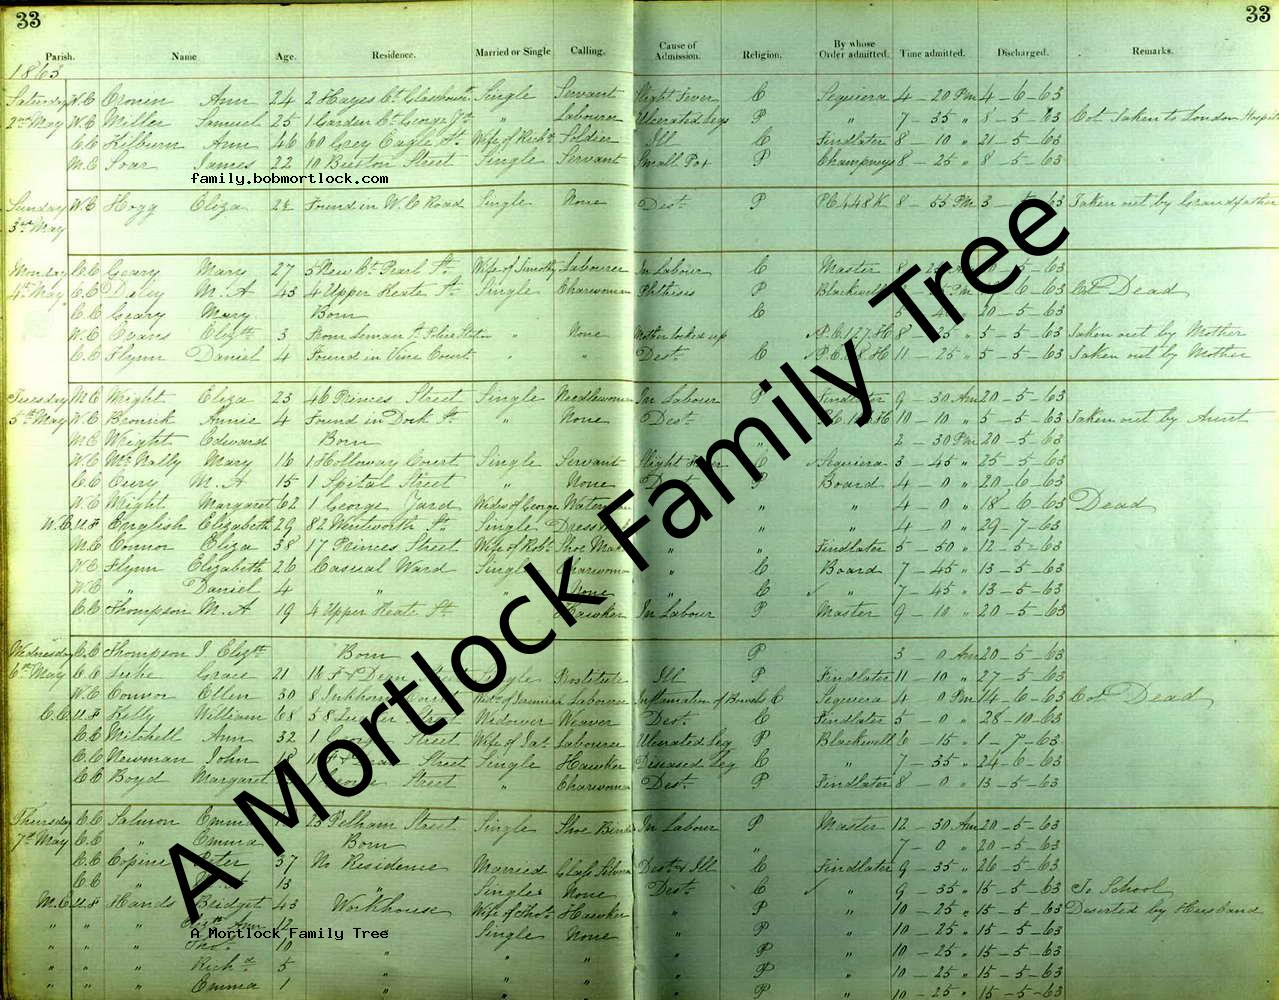 33 33
Parish. Name Age. Residence. Married or Single Calling. Cause of Admission. Religion. By whose Order admitted. Time admitted. Discharged. Remarks.
1863
Saturday W.C Cronin Ann 24 2 Hayes Ct Single Servant Slight Fever C Sequiera 4 - 20 Pm 4 - 6 - 63
2nd May W.C Miller Samuel 25 1 Garden Ct George Yd " Labourer Ulcerated Legs P " 7 - 35 " 8 - 5 - 63 Cot Taken to London Hospital
C.C Kilburn Ann 46 60 Grey Eagle St Wife of Richd Soldier Ill C Findlater 8 - 10 " 21 - 5 - 63
M.C Soar James 22 10 Buxton Street Single Servant Small Pox P Champneys 8 - 25 " 8 - 5 - 63
family.bobmortlock.com
Sunday W.C Hogg Eliza 2½ Found in W.C Road Single None Dest. P P.C 448 K 8 - 55 Pm 3 - 5 - 63 Taken out by Grandfather
3rd May
Monday C.C Geary Mary 27 5 New Ct Pearl St Wife of Timothy Labourer In Labour C Master 8 - 5 - 63
4th May C.C Daley M.A 43 4 Upper Keate St Single Charwoman Phthisis P Blackwell Pm 7 - 6 - 63 Dead
C.C Geary Mary Born C 5 - 20 - 5 - 63
W.C Evans Elizth 3 From Leman St Police Station " None Mother locked up P.C 127 H 8 - 25 " 5 - 5 - 63 Taken out by Mother
C.C Flynn Daniel 4 Found in Vine Court " " Dest. C P.C H 11 - 25 " 5 - 5 - 63 Taken out by Mother
Tuesday M.C Wright Eliza 23 46 Princes Street Single Needlewoman In Labour P Findlater 9 - 30 Am 20 - 5 - 63
5th May W.C Annie 4 Found in Dock St " None Dest. P.C H 10 - 10 " 5 - 5 - 63 Taken out by Aunt
M.C Wright Edward Born " 2 - 30 Pm 20 - 5 - 63
W.C McNally Mary 16 1 Holloway Court Single Servant Slight Fever C Sequiera 3 - 45 " 25 - 5 - 63
C.C M.A 15 1 Spital Street " None Dest. Board 4 - 0 " 20 - 6 - 63
W.C Wright Margaret 62 1 George Yard Widow of George " " 4 - 0 " 18 - 6 - 63 Dead
W.C U.F English Elizabeth 29 82 Wentworth St Single Dress " " 4 - 0 " 29 - 7 - 63
M.C Connor Eliza 38 17 Princes Street Wife of Robt Shoe " " Findlater 5 - 50 " 12 - 5 - 63
W.C Flynn Elizabeth 26 Casual Ward Single Charwoman " C Board 7 - 45 " 13 - 5 - 63
W.C " Daniel 4 " " None " C " 7 - 45 " 13 - 5 - 63
C.C Thompson M.A 19 4 Upper Keate St Hawker In Labour P Master 9 - 10 " 20 - 5 - 63
Wednesday C.C Thompson J. Elizth Born P 3 - 0 Am 20 - 5 - 63
6th May C.C Luke Grace 21 16 F & Dean Street Single Prostitute Ill P Findlater 11 - 10 " 27 - 5 - 63
W.C Connor Ellen 30 8 Court Labourer Inflamation of Bowels C Sequiera 4 - 0 Pm 14 - 6 - 63 Cot Dead
C.C U.F Kelly William 68 Street Widower Weaver Dest. C Findlater 5 - 0 " 28 - 10 - 63
C.C Mitchell Ann 32 1 George Street Wife of Jas. Labourer Ulcerated Leg P Blackwell 6 - 15 " 1 - 7 - 63
C.C Newman John Street Single Hawker Diseased Leg C " 7 - 35 " 24 - 6 - 63
C.C Boyd Margaret George Street " Charwoman Dest. P Findlater 8 - 0 " 13 - 5 - 63
Thursday C.C Salmon Emma 25 Pelham Street Single Shoe Binder In Labour P Master 12 - 30 Am 20 - 5 - 63
7th May C.C " Emma Born " 7 - 0 " 20 - 5 - 63
C.C Peter 37 No Residence Married Dest. & Ill C Findlater 9 - 35 " 26 - 5 - 63
C.C " 13 " Single None Dest. C " 9 - 35 " 15 - 5 - 63 To School
M.C U.F Hands Bridget 43 Workhouse Wife of Thos. Hawker " P " 10 - 25 " 15 - 5 - 63 Deserted by Husband
" " " Ann 12 Single None " P " 10 - 25 " 15 - 5 - 63
A Mortlock Family Tree
" " " Thos. 10 " " " " P " 10 - 25 " 15 - 5 - 63
" " " Richd 5 " " " " P " 10 - 25 " 15 - 5 - 63
" " " Emma 1 " " " " P " 10 - 25 " 15 - 5 - 63
A Mortlock Family Tree